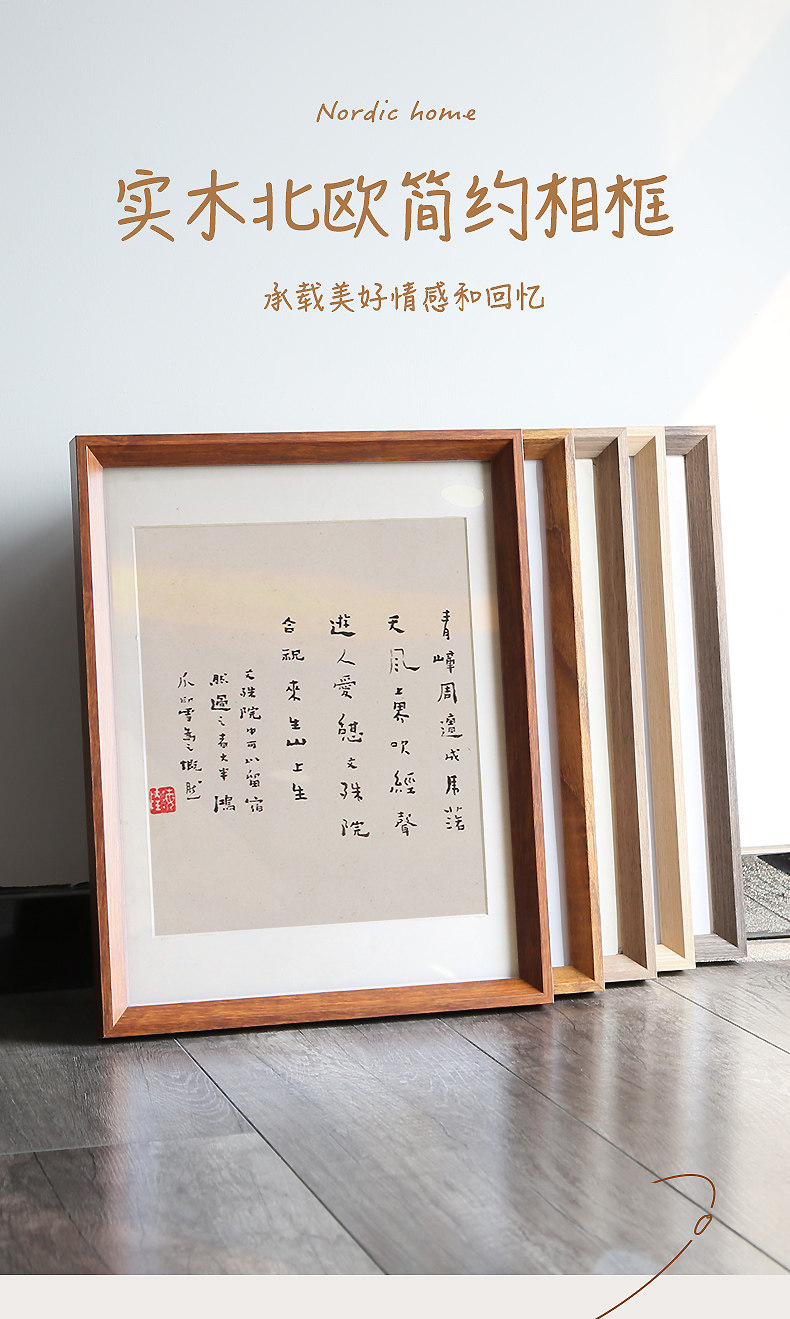 Nordic home
实木北欧简约相框
承载美好情感和回忆
青嶂周遭成虎落
天風上界吹經聲
遊人愛憇文殊院
合祝來生山上生
文殊院中可以留宿
然過之者大半鴻
爪印雪為之慨然